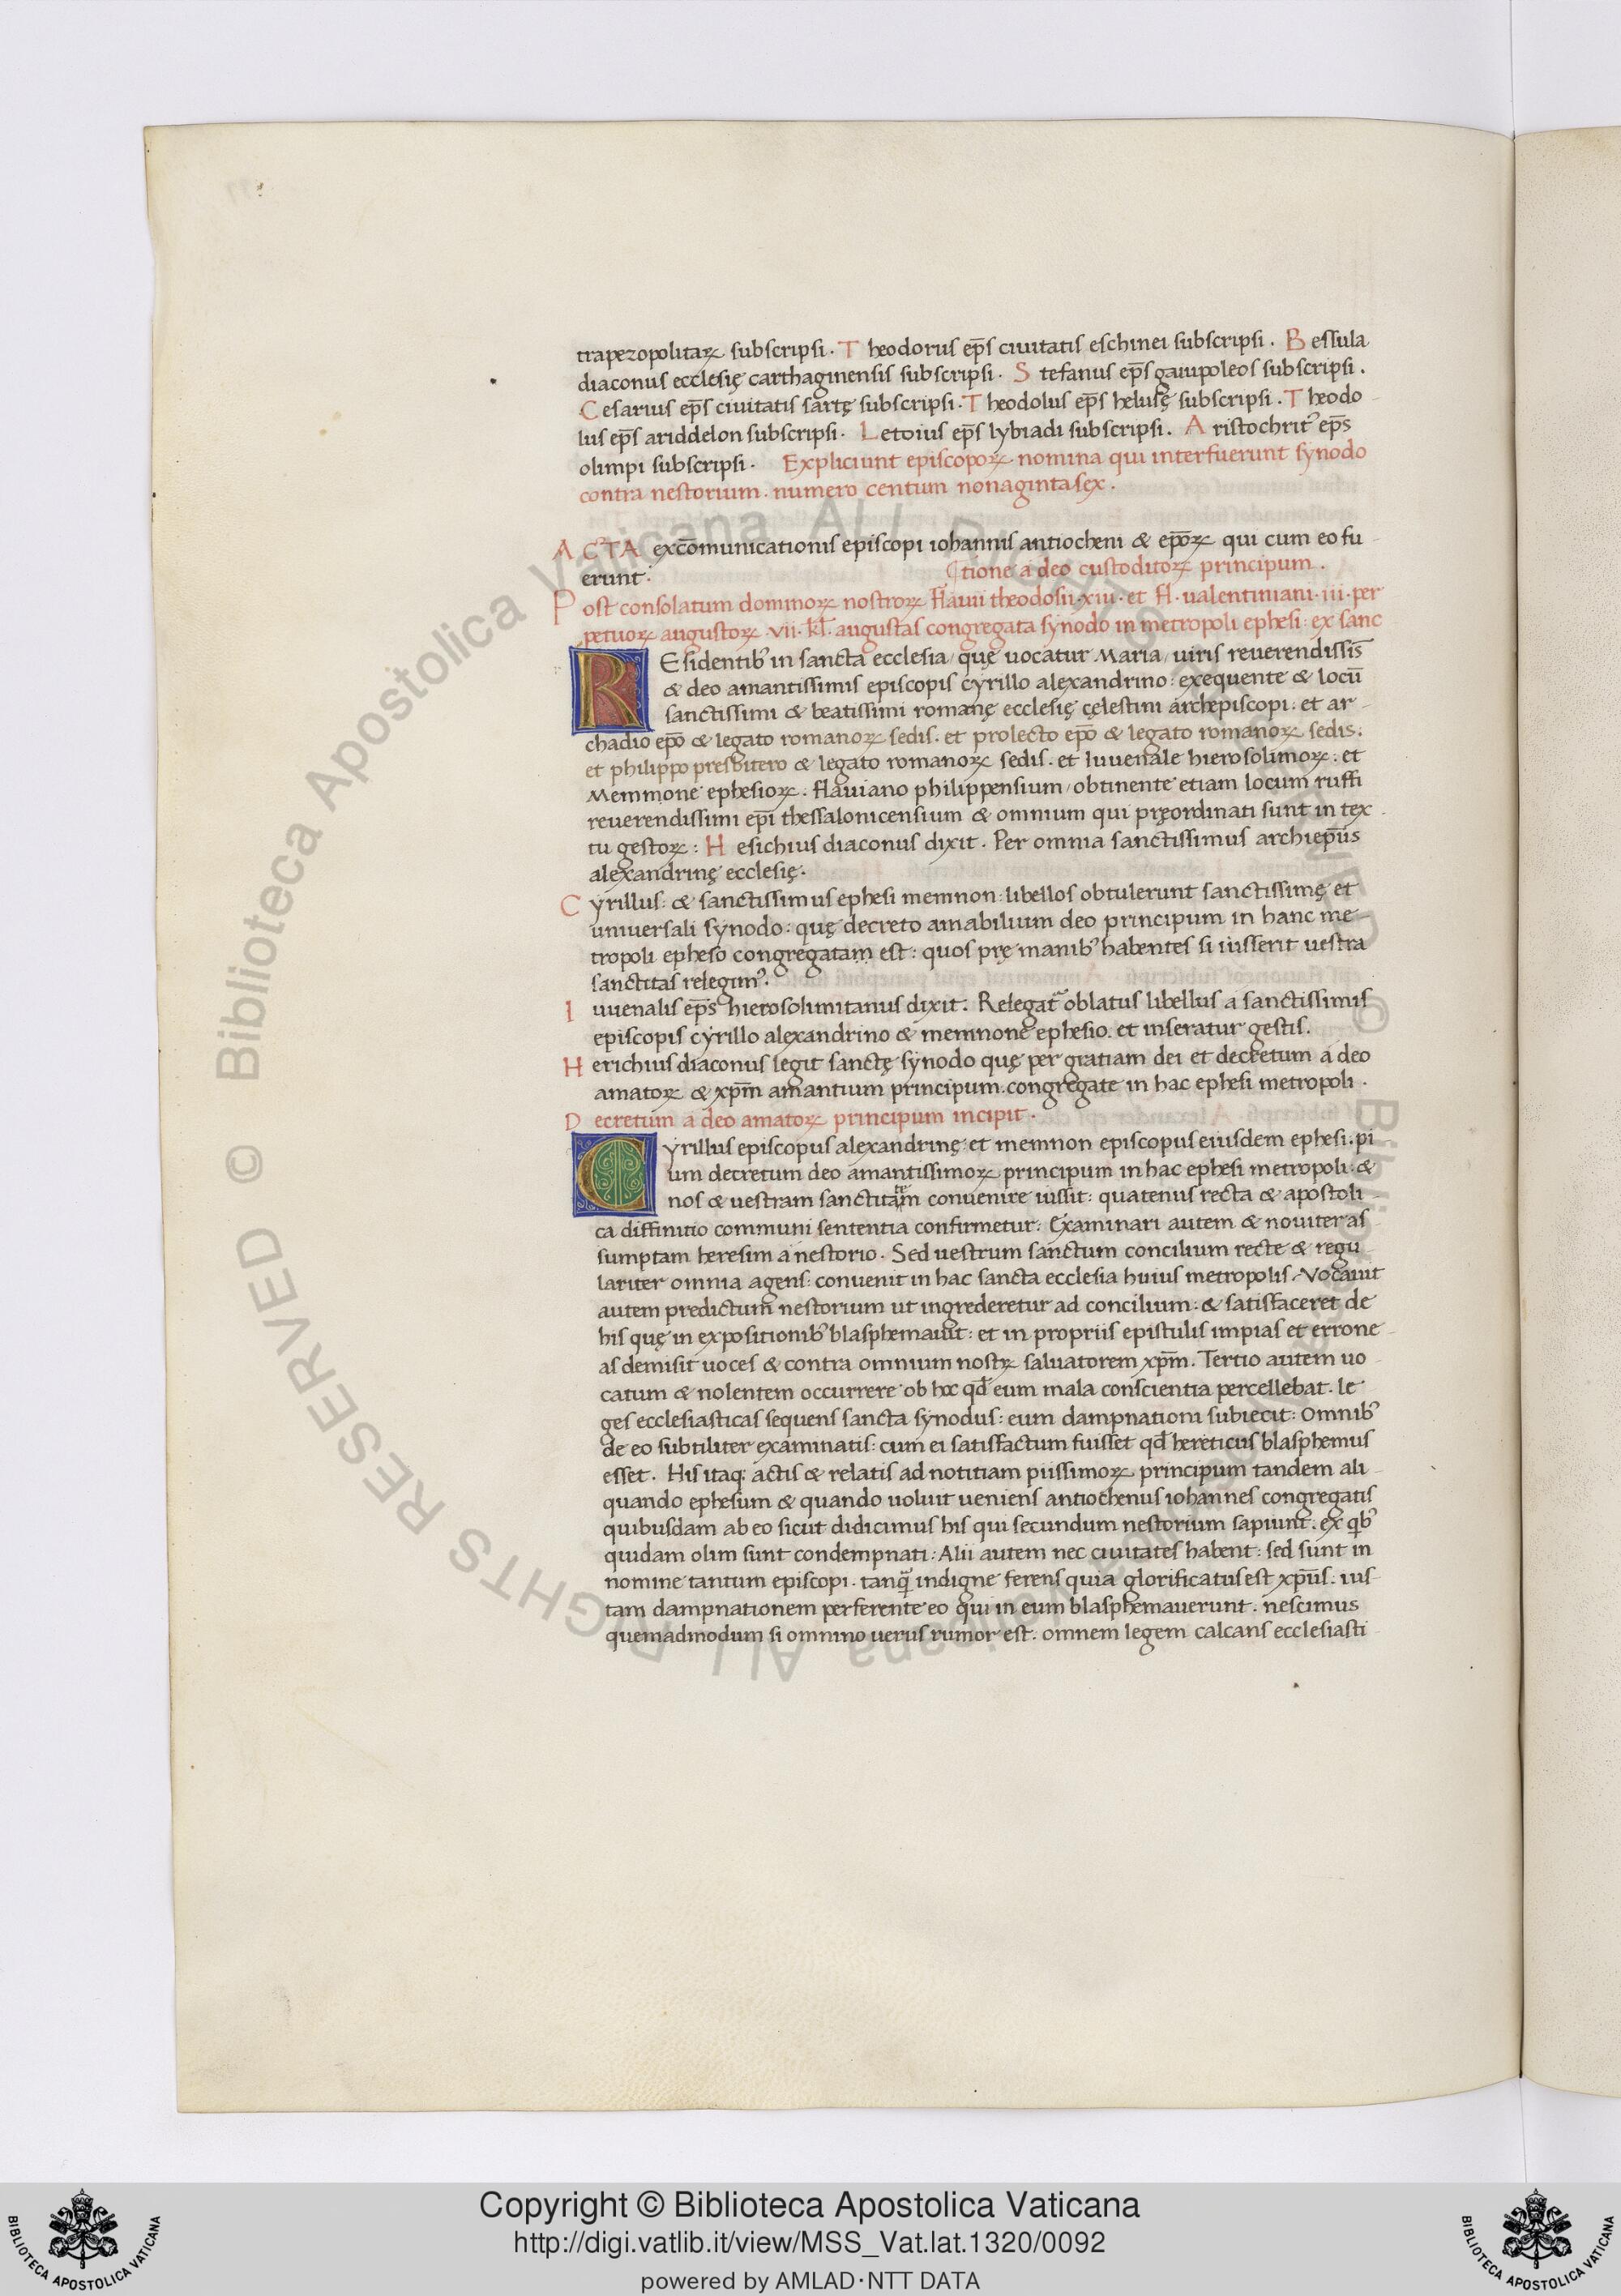 trapezopolitaꝝ subscripsi. Theodorus ep̄s ciuitatis eschinei subscripsi. Bessula
diaconus ecclesię carthaginensis subscripsi. Stefanus ep̄s gaiupoleos subscripsi.
Cesarius ep̄s ciuitatis sartę subscripsi. Theodolus ep̄s helusę subscripsi. Theodo-
lus ep̄s ariddelon subscripsi. Letoius ep̄s lybiadi subscripsi. Aristochrit᾽ ep̄s
olimpi subscripsi. Expliciunt episcopoꝝ nomina qui interfuerunt synodo
contra nestorium. numero centum nonagintasex.
ACTA exc̄omunicationis episcopi iohannis antiocheni & ep̄oꝝ qui cum eo fu-
erunt. tione a deo custoditoꝝ principum.
Post consolatum dominoꝝ nostroꝝ flauii theodosii .xiii. et fl. ualentiniani .iii. per
petuoꝝ augustoꝝ .vii. kl̄. augustas congregata synodo in metropoli ephesi: ex sanc
REsidentib᾽ in sancta ecclesia/ quę uocatur Maria/ uiris reuerendissīs
& deo amantissimis episcopis cyrillo alexandrino: exequente & locū
sanctissimi & beatissimi romanę ecclesię cęlestini archepiscopi: et ar-
chadio ep̄o & legato romanoꝝ sedis. et prolecto ep̄o & legato romanoꝝ sedis:
et philippo presbitero & legato romanoꝝ sedis. et Iuuenale hierosolimoꝝ: et
Memmone ephesioꝝ. flauiano philippensium/ obtinente etiam locum ruffi
reuerendissimi ep̄i thessalonicensium & omnium qui pręordinati sunt in tex-
tu gestoꝝ: Hesichius diaconus dixit. Per omnia sanctissimus archiep̄us
alexandrinę ecclesię.
Cyrillus: & sanctissimus ephesi memnon: libellos obtulerunt sanctissimę et
uniuersali synodo: quę decreto amabilium deo principum in hanc me-
tropoli epheso congregatam est: quos prę manib᾽ habentes si iusserit uestra
sanctitas relegim᾽.
Iuuenalis ep̄s hierosolimitanus dixit. Relegat᾽ oblatus libellus a sanctissimis
episcopis cyrillo alexandrino & memnone ephesio. et inseratur gestis.
Herichius diaconus legit sanctę synodo quę per gratiam dei et decretum a deo
amatoꝝ & xp̄m amantium principum. congregate in hac ephesi metropoli.
Decretum a deo amatoꝝ principum incipit.
Cyrillus episcopus alexandrinę: et memnon episcopus eiusdem ephesi. pi
um decretum deo amantissimoꝝ principum in hac ephesi metropoli: &
nos & uestram sanctitatem conuenire iussit: quatenus recta & apostoli-
ca diffinitio communi sententia confirmetur: Examinari autem & nouiter as-
sumptam heresim a nestorio. Sed uestrum sanctum concilium recte & regu-
lariter omnia agens: conuenit in hac sancta ecclesia huius metropolis. Vocauit
autem predictum nestorium ut ingrederetur ad concilium: & satisfaceret de
his quę in expositionib᾽ blasphemauit: et in propriis epistulis impias et errone-
as demisit uoces & contra omnium nostꝝ saluatorem xp̄m. Tertio autem uo-
catum & nolentem occurrere ob hoc qd̄ eum mala conscientia percellebat. le
ges ecclesiasticas sequens sancta synodus: eum dampnationi subiecit: Omnib᾽
de eo subtiliter examinatis: cum ei satisfactum fuisset qd̄ hereticus blasphemus
esset. His itaq; actis & relatis ad notitiam piissimoꝝ principum tandem ali-
quando ephesum & quando uoluit ueniens antiochenus iohannes congregatis
quibusdam ab eo sicut didicimus his qui secundum nestorium sapiunt. ex qb᾽
quidam olim sunt condempnati: Alii autem nec ciuitates habent: sed sunt in
nomine tantum episcopi. tanq̄ indigne ferens quia glorificatus est xp̄us. ius-
tam dampnationem perferente eo qui in eum blasphemauerunt. nescimus
quemadmodum si omnino uerus rumor est. omnem legem calcans ecclesiasti-
© Biblioteca Apostolica Vaticana ALL RIGHTS RESERVED
Copyright © Biblioteca Apostolica Vaticana
http://digi.vatlib.it/view/MSS_Vat.lat.1320/0092
powered by AMLAD·NTT DATA
BIBLIOTECA APOSTOLICA VATICANA
BIBLIOTECA APOSTOLICA VATICANA